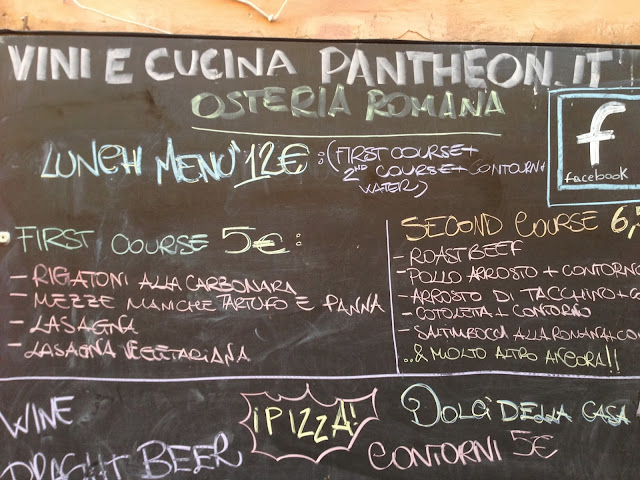 VINI E CUCINA PANTHEON.IT
OSTERIA ROMANA
f
facebook
LUNCH MENU' 12€ : (FIRST COURSE +
2ND COURSE + CONTORNI +
WATER)
FIRST COURSE 5€ :
- RIGATONI ALLA CARBONARA
- MEZZE MANICHE TARTUFO E PANNA
- LASAGNA
- LASAGNA VEGETARIANA
SECOND COURSE 6,
- ROAST BEEF
- POLLO ARROSTO + CONTORNO
- ARROSTO DI TACCHINO + CO
- COTOLETTA + CONTORNO
- SALTIMBOCCA ALLA ROMANA + CON
..& MOLTO ALTRO ANCORA!!
WINE
DRAGHT BEER
¡PIZZA!
DOLCI DELLA CASA
CONTORNI 5€